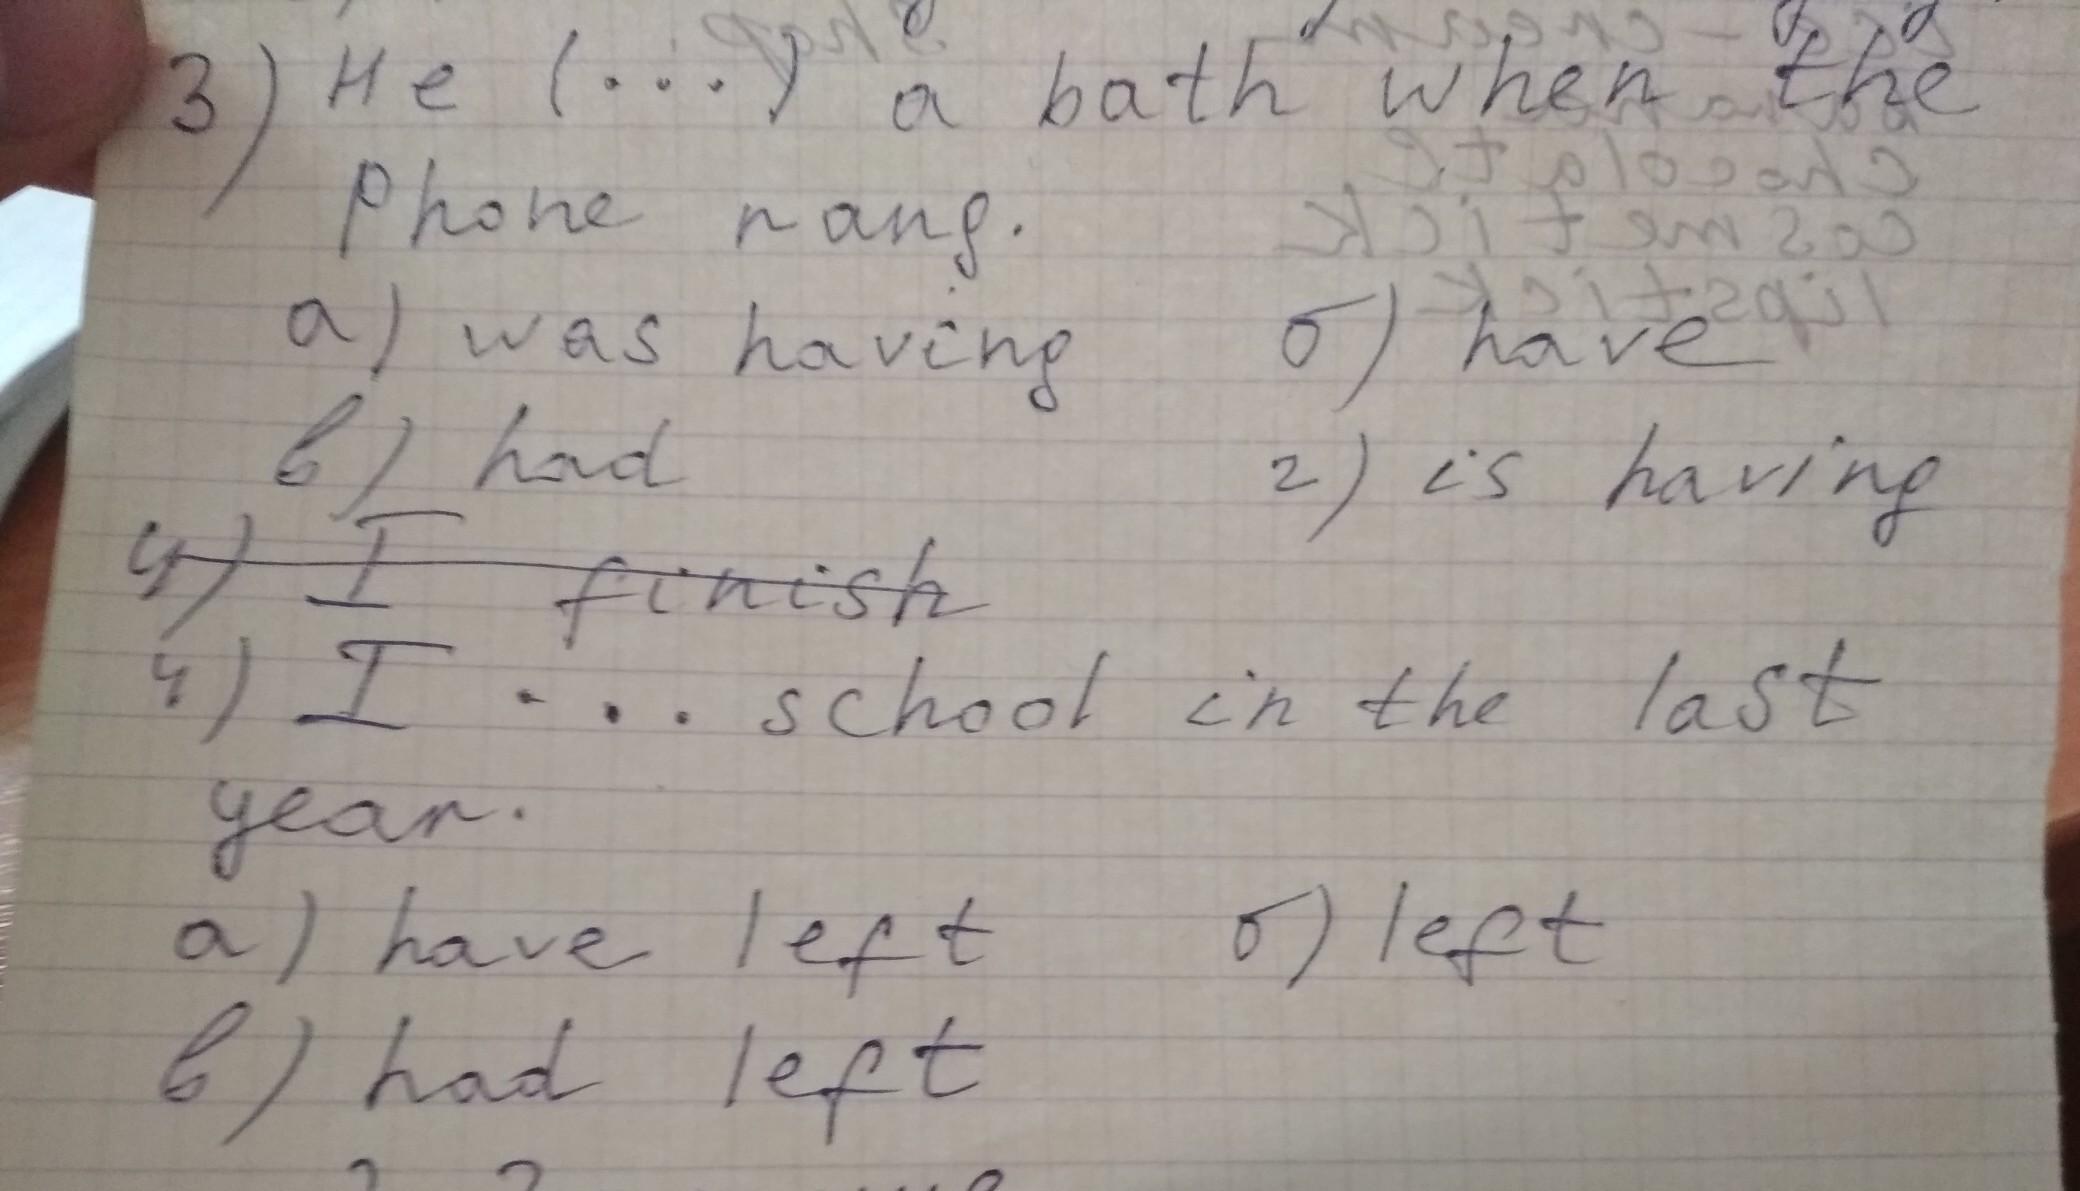 3) He (...) a bath when the
phone rang.
а) was having б) have
в) had г) is having
4) I finish
4) I ... school in the last
year.
а) have left б) left
в) had left